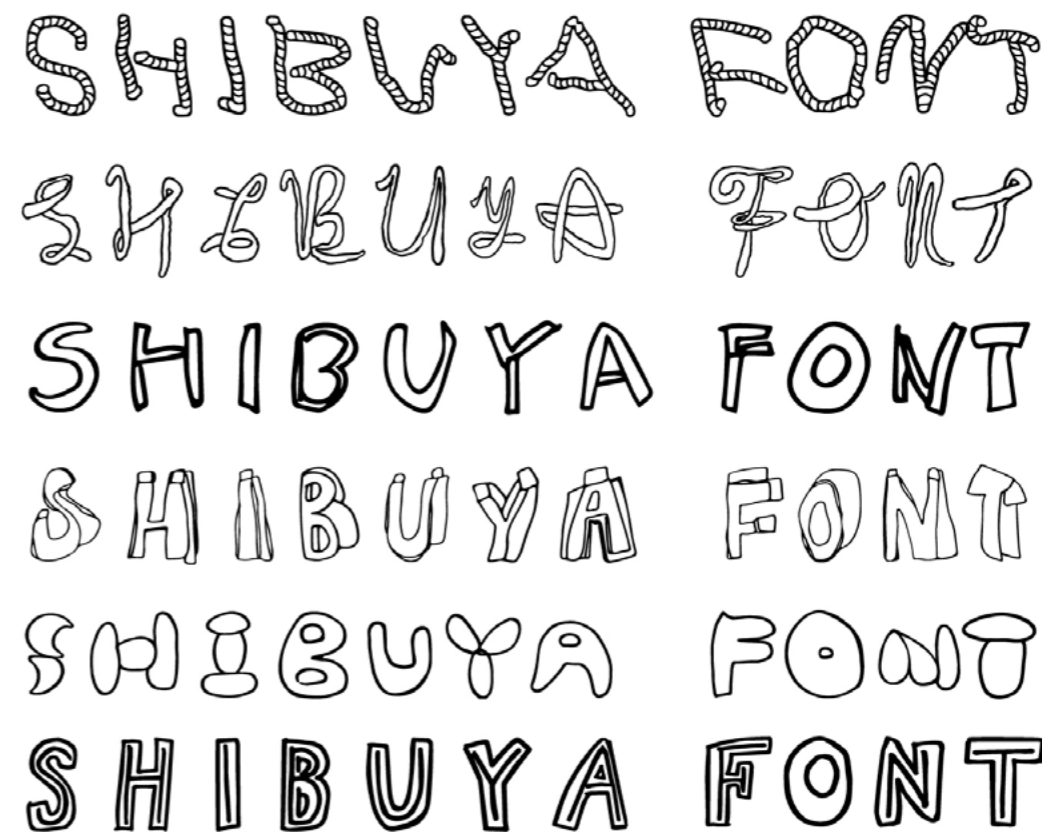 SHIBUYA FONT
SHIBUYA FONT
SHIBUYA FONT
SHIBUYA FONT
SHIBUYA FONT
SHIBUYA FONT